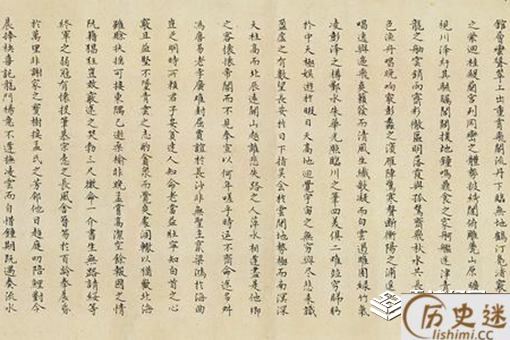 聳翠上出重霄飛閣流丹下臨無地鶴汀鳧渚窮
之縈迴桂殿蘭宮列岡巒之體勢披繡闥俯雕甍山原曠
視川澤紆其駭矚閭閻撲地鐘鳴鼎食之家舸艦迷津青
龍之舳雲銷雨霽彩徹區明落霞與孤鶩齊飛秋水共長
色漁舟唱晚響窮彭蠡之濱雁陣驚寒聲斷衡陽之浦遙
唱逸興遄飛爽籟發而清風生纖歌凝而白雲遏睢園綠竹氣
凌彭澤之樽鄴水朱華光照臨川之筆四美俱二難并窮睇眄
於中天極娛遊於暇日天高地迥覺宇宙之無窮興盡悲來識
盈虛之有數望長安於日下指吳會於雲間地勢極而南溟深
天柱高而北辰遠關山難越誰悲失路之人萍水相逢盡是他鄉
之客懷帝閽而不見奉宣以何年嗟乎時運不齊命途多舛
馮唐易老李廣難封屈賈誼於長沙非無聖主竄梁鴻於海曲
豈乏明時所賴君子安貧達人知命老當益壯寧知白首之心
窮且益堅不墜青雲之志酌貪泉而覺爽處涸轍以猶歡北海
雖賒扶搖可接東隅已逝桑榆非晚孟嘗高潔空餘報國之情
阮籍猖狂豈效窮途之哭勃三尺微命一介書生無路請纓等
終軍之弱冠有懷投筆慕宗愨之長風舍簪笏於百齡奉晨昏
於萬里非謝家之寶樹接孟氏之芳鄰他日趨庭叨陪鯉對今
晨捧袂喜託龍門楊意不逢撫凌雲而自惜鍾期既遇奏流水
历史迷
lishimi.cc